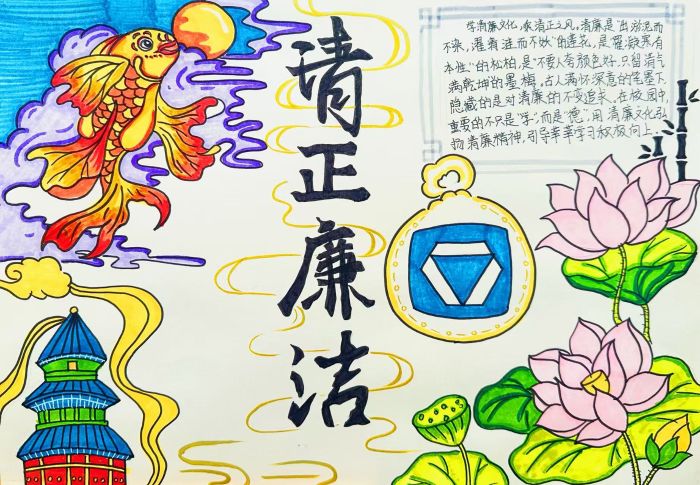 清正廉洁
学清廉文化,承清正之风,清廉是"出淤泥而
不染,濯清涟而不妖"的莲花,是"罹凝寒有
本性"的松柏,是"不要人夸颜色好,只留清气
满乾坤"的墨梅,古人满怀深意的笔墨下,
隐藏的是对清廉的不变追求。在校园中,
重要的不只是"学",而是"德",用清廉文化弘
扬清廉精神,引导莘莘学习积极向上。